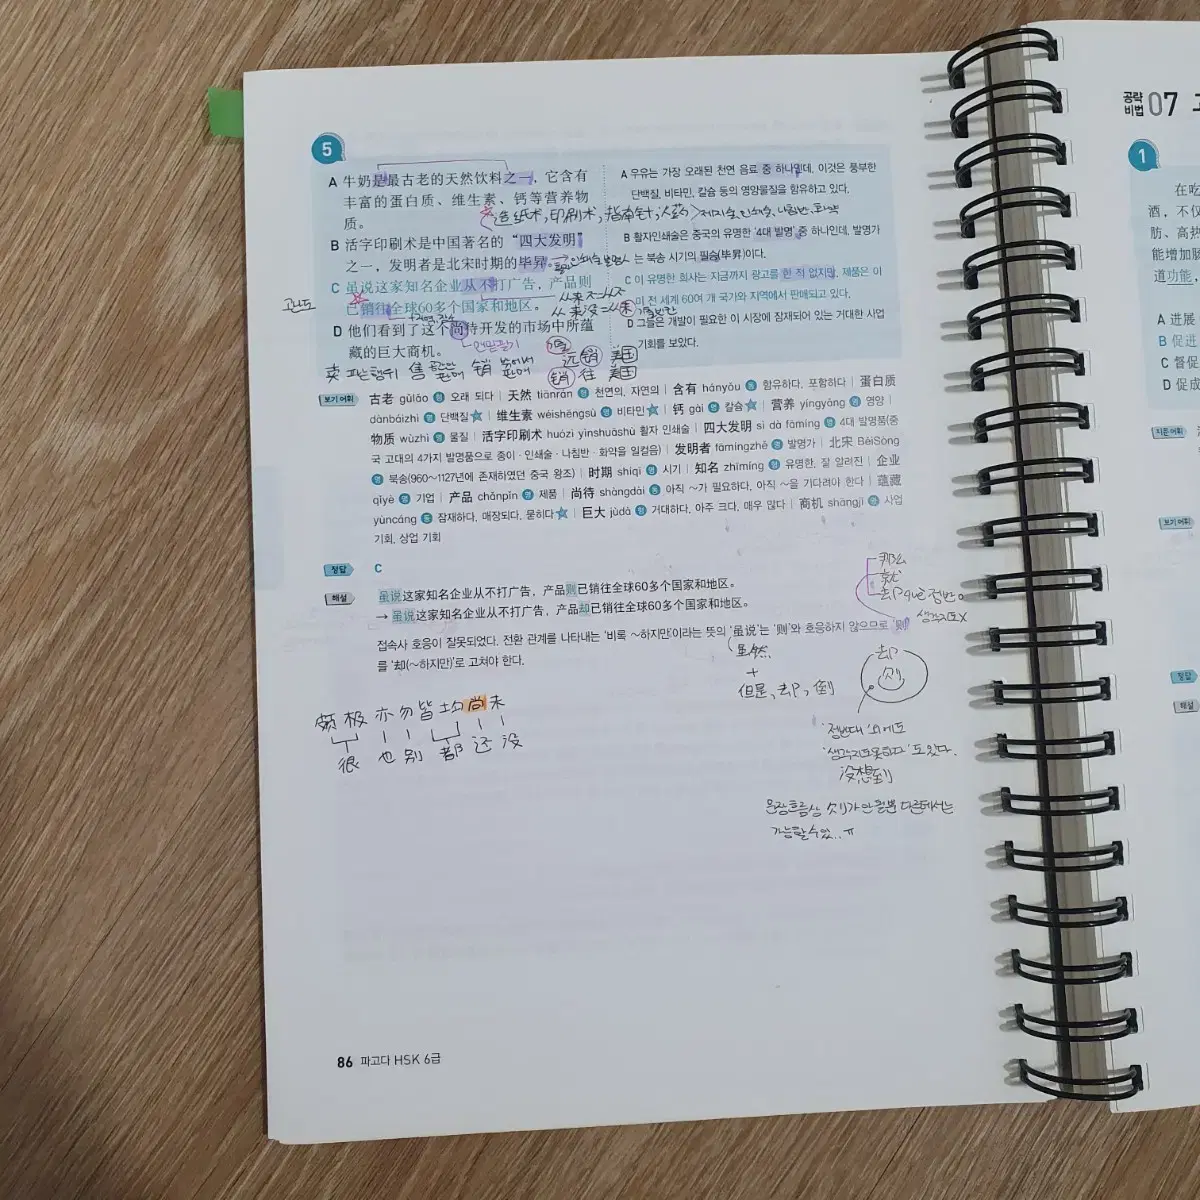 5
A 牛奶是最古老的天然饮料之一，它含有
丰富的蛋白质、维生素、钙等营养物
质。
造纸术, 印刷术, 指南针, 火药
B 活字印刷术是中国著名的“四大发明”
之一，发明者是北宋时期的毕昇。
C 虽说这家知名企业从不打广告，产品则
已销往全球60多个国家和地区。
D 他们看到了这个尚待开发的市场中所蕴
藏的巨大商机。
A 우유는 가장 오래된 천연 음료 중 하나인데, 이것은 풍부한
단백질, 비타민, 칼슘 등의 영양물질을 함유하고 있다.
B 활자인쇄술은 중국의 유명한 '4대 발명' 중 하나인데, 발명가
는 북송 시기의 필승(毕昇)이다.
C 이 유명한 회사는 지금까지 광고를 한 적 없지만, 제품은 이
미 전 세계 60여 개 국가와 지역에서 판매되고 있다.
D 그들은 개발이 필요한 이 시장에 잠재되어 있는 거대한 사업
기회를 보았다.
从来不=从不
从来没=从未
远销 美国
销往 美国
보기 어휘
古老 gǔlǎo 형 오래 되다 | 天然 tiānrán 형 천연의, 자연의 | 含有 hányǒu 동 함유하다, 포함하다 | 蛋白质
dànbáizhì 명 단백질 | 维生素 wéishēngsù 명 비타민 | 钙 gài 명 칼슘 | 营养 yíngyǎng 명 영양 |
物质 wùzhì 명 물질 | 活字印刷术 huózì yìnshuāshù 활자 인쇄술 | 四大发明 sì dà fāmíng 명 4대 발명품(중
국 고대의 4가지 발명품으로 종이·인쇄술·나침반·화약을 일컬음) | 发明者 fāmíngzhě 명 발명가 | 北宋 BěiSòng
명 북송(960~1127년에 존재하였던 중국 왕조) | 时期 shíqī 명 시기 | 知名 zhīmíng 형 유명한, 잘 알려진 | 企业
qǐyè 명 기업 | 产品 chǎnpǐn 명 제품 | 尚待 shàngdài 동 아직 ~가 필요하다, 아직 ~을 기다려야 한다 | 蕴藏
yùncáng 동 잠재하다, 매장되다, 묻히다 | 巨大 jùdà 형 거대하다, 아주 크다, 매우 많다 | 商机 shāngjī 명 사업
기회, 상업 기회
정답 C
해설 虽说这家知名企业从不打广告，产品则已销往全球60多个国家和地区。
→ 虽说这家知名企业从不打广告，产品却已销往全球60多个国家和地区。
접속사 호응이 잘못되었다. 전환 관계를 나타내는 '비록 ~하지만'이라는 뜻의 '虽说'는 '则'와 호응하지 않으므로 '则'
를 '却(~하지만)'로 고쳐야 한다.
那么
就
却 què 정반대
생각지도X
虽然
+
但是, 却, 倒
却
则
颇 极 亦 勿 皆 均 尚 未
很 也 别 都 还 没
'정반대' 외에도
'생각지도못하다'도 있다.
没想到
86 파고다 HSK 6급
공략
비법 07
1
在吃
酒，不仅
肪、高热
能增加肠
道功能，
A 进展
B 促进
C 督促
D 促成
지문 어휘
보기 어휘
정답
해설